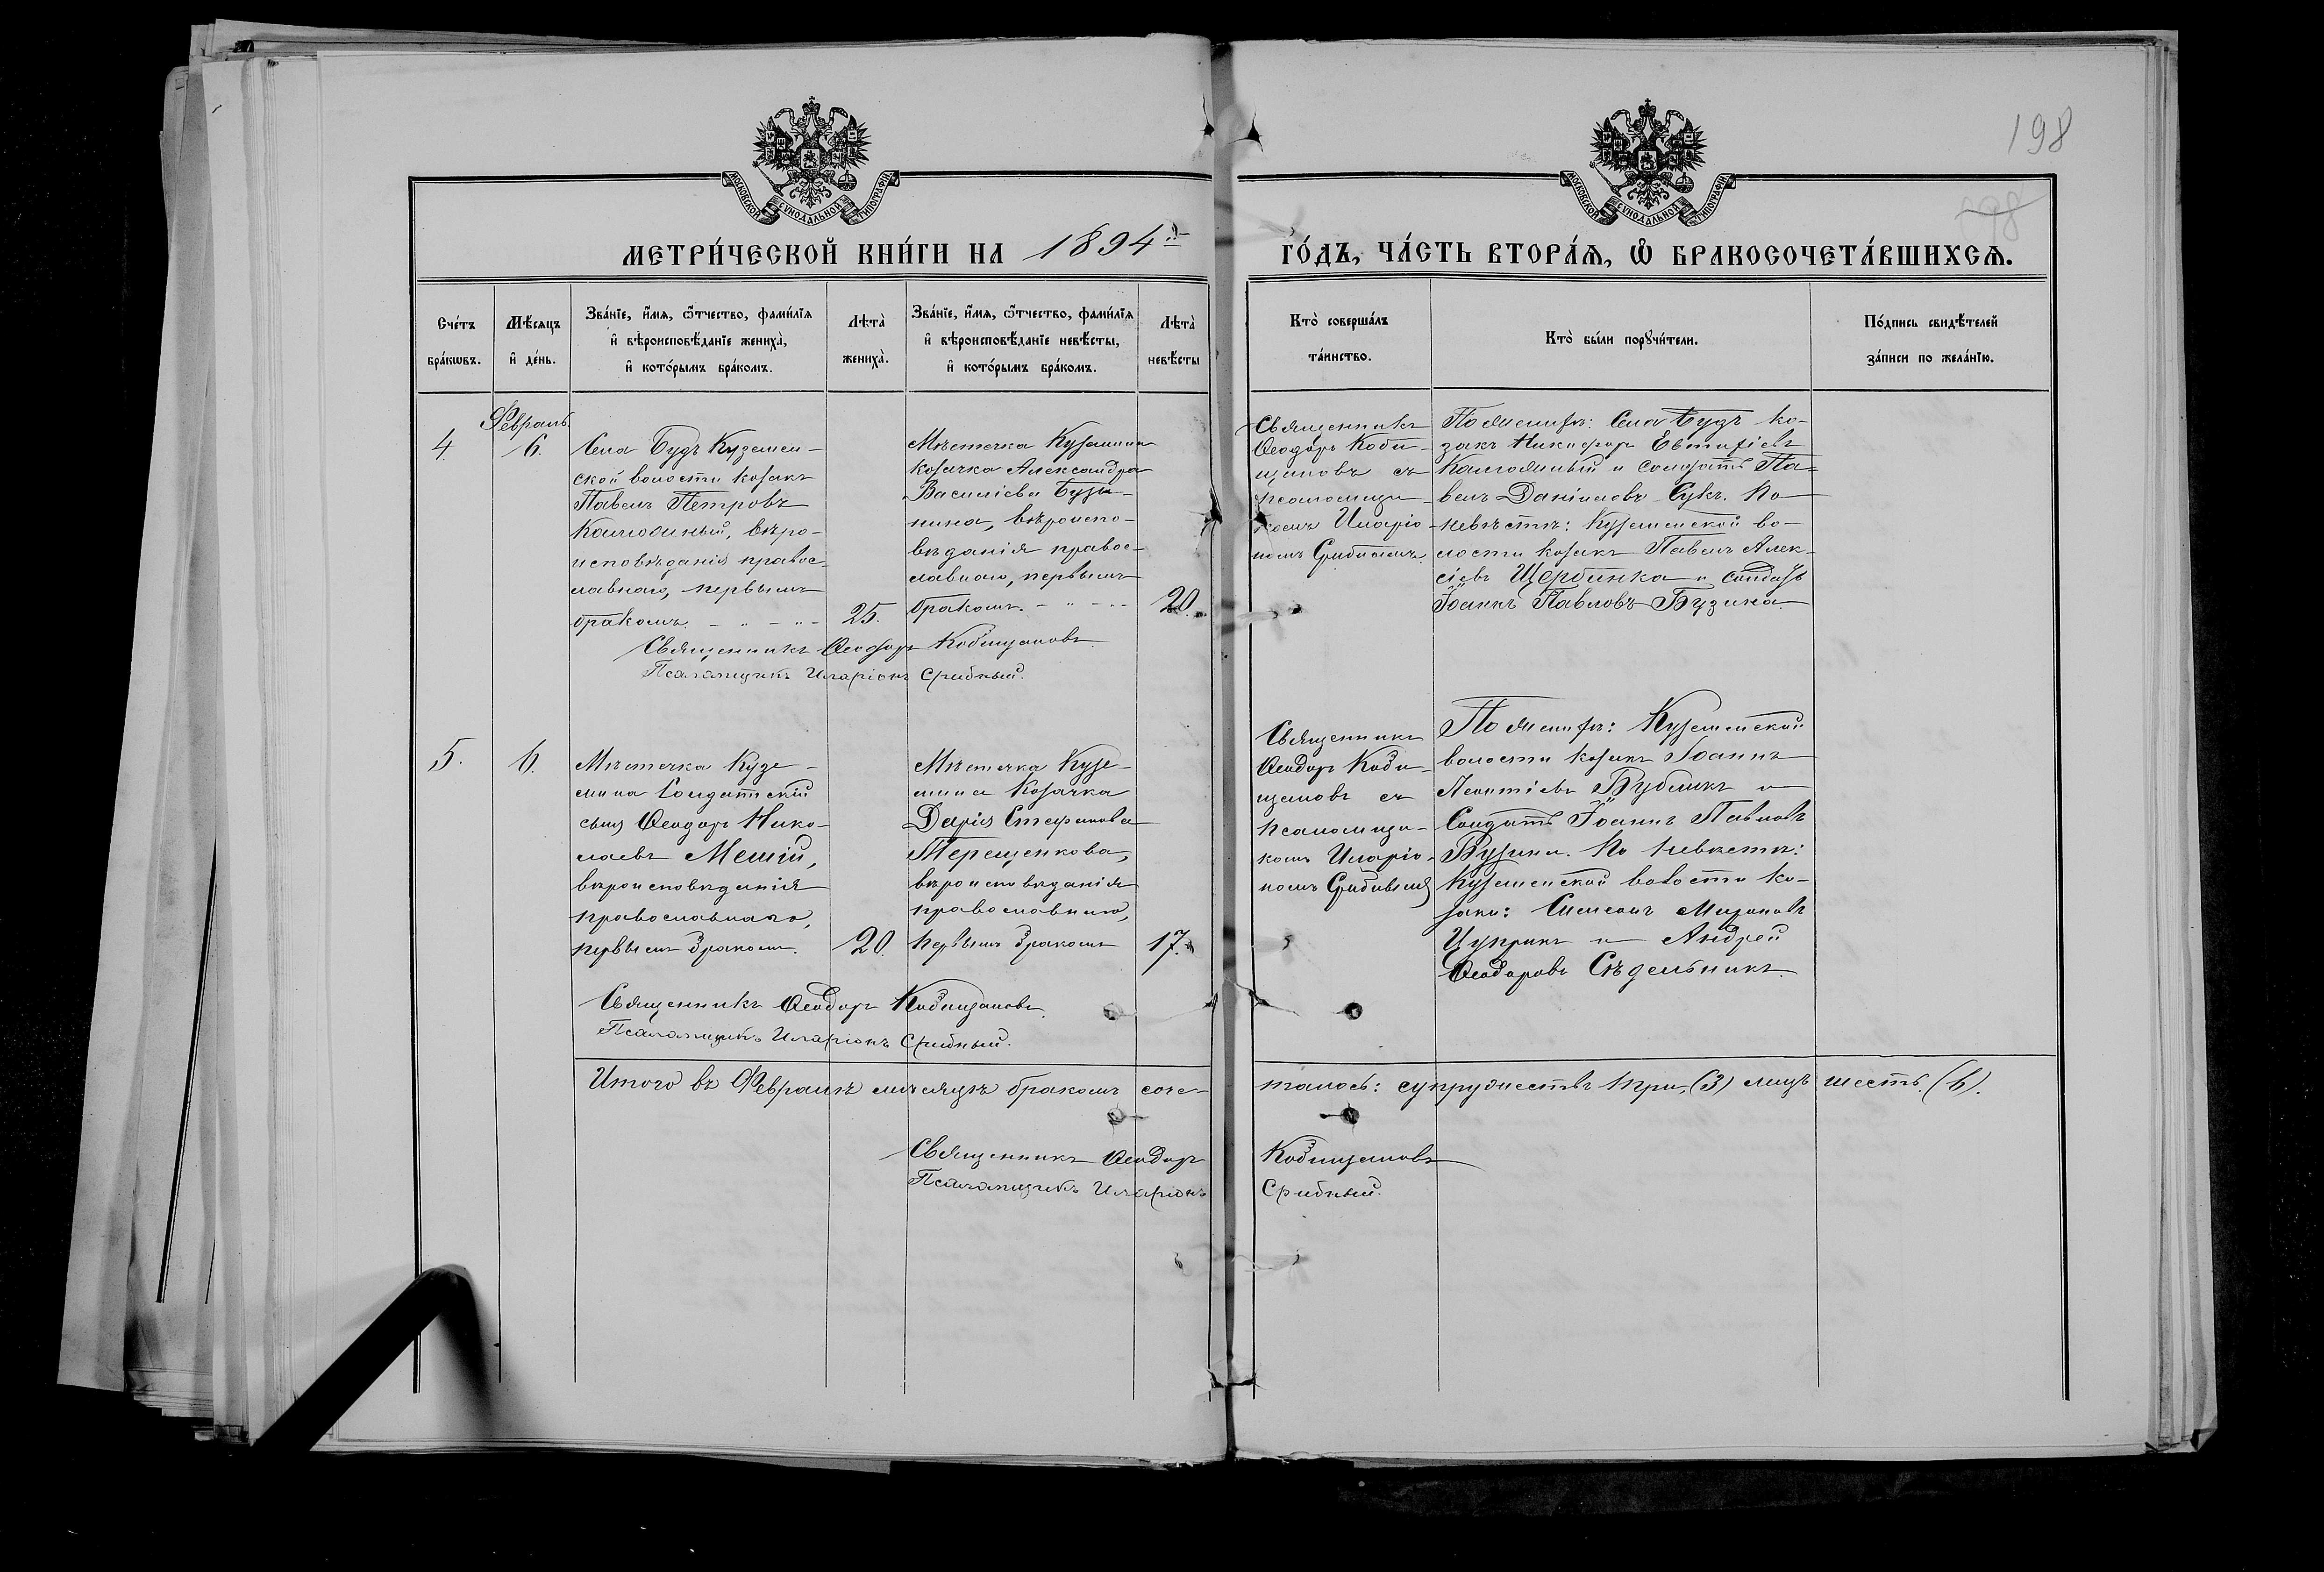 198
198
МОСКОВСКОЙ СѴНОДАЛЬНОЙ ТИПОГРАФІИ
МОСКОВСКОЙ СѴНОДАЛЬНОЙ ТИПОГРАФІИ
МЕТРИ́ЧЕСКОЙ КНИ́ГИ НА 1894й
ГО́ДЪ, ЧА́СТЬ ВТОРА́Я, Ѽ БРАКОСОЧЕТА́ВШИХСЯ.
Сче́тъ
бра́кωвъ.
Мѣ́сяцъ
и҆ де́нь.
Зва́нїе, и҆́мя, ѻ҆́тчество, фами́лїя
и҆ вѣроисповѣ́данїе жениха̀,
и҆ кото́рымъ бра́комъ.
Лѣта̀
жениха̀.
Зва́нїе, и҆́мя, ѻ҆́тчество, фами́лїя
и҆ вѣроисповѣ́данїе невѣ́сты,
и҆ кото́рымъ бра́комъ.
Лѣта̀
невѣ́сты
Кто̀ соверша́лъ
та́инство.
Кто̀ бы́ли порꙋчи́тели.
По́дпись свидѣ́телей
за́писи по жела́нїю.
4.
Февраль.
6.
Села Будъ Куземен-
ской волости козакъ
Павелъ Петровъ
Калюжный, вѣро-
исповѣданія правос-
лавнаго, первымъ
бракомъ.
25.
Мѣстечка Куземина
козачка Александра
Василіева Бузы-
нина, вѣроиспо-
вѣданія правос-
лавнаго, первымъ
бракомъ.
20.
Священникъ Ѳеодоръ Кобищановъ.
Псаломщикъ Иларіонъ Срибный.
Священникъ
Ѳеодоръ Коби-
щановъ съ
псаломщи-
комъ Иларіо-
номъ Срибнымъ.
По женихѣ: Села Будъ ко-
закъ Никифоръ Евтихіевъ
Калюжный и солдатъ Па-
велъ Даніиловъ Сукъ. По
невѣстѣ: Куземенской во-
лости козакъ Павелъ Алек-
сіевъ Щербинка и солдатъ
Іоаннъ Павловъ Бузина.
5.
6.
Мѣстечка Кузе-
мина Солдатскій
сынъ Ѳеодоръ Нико-
лаевъ Мешій,
вѣроисповѣданія
православнаго,
первымъ бракомъ.
20.
Мѣстечка Кузе-
мина Козачка
Дарія Стефанова
Терещенкова,
вѣроисповѣданія
православнаго,
первымъ бракомъ
17.
Священникъ Ѳеодоръ Кобищановъ.
Псаломщикъ Иларіонъ Срибный.
Священникъ
Ѳеодоръ Коби-
щановъ съ
псаломщи-
комъ Иларіо-
номъ Срибнымъ
По женихѣ: Куземенской
волости козакъ Іоаннъ
Леонтіевъ Бубликъ и
Солдатъ Іоаннъ Павловъ
Бузина. По невѣстѣ:
Куземенской волости ко-
заки: Симеонъ Мироновъ
Цуприкъ и Андрей
Ѳеодоровъ Сѣдельникъ.
Итого въ Февралѣ мѣсяцѣ бракомъ соче-
талось: супружествъ три, (3) лицъ шесть. (6).
Священникъ Ѳеодоръ Кобищановъ
Псаломщикъ Иларіонъ Срибный.